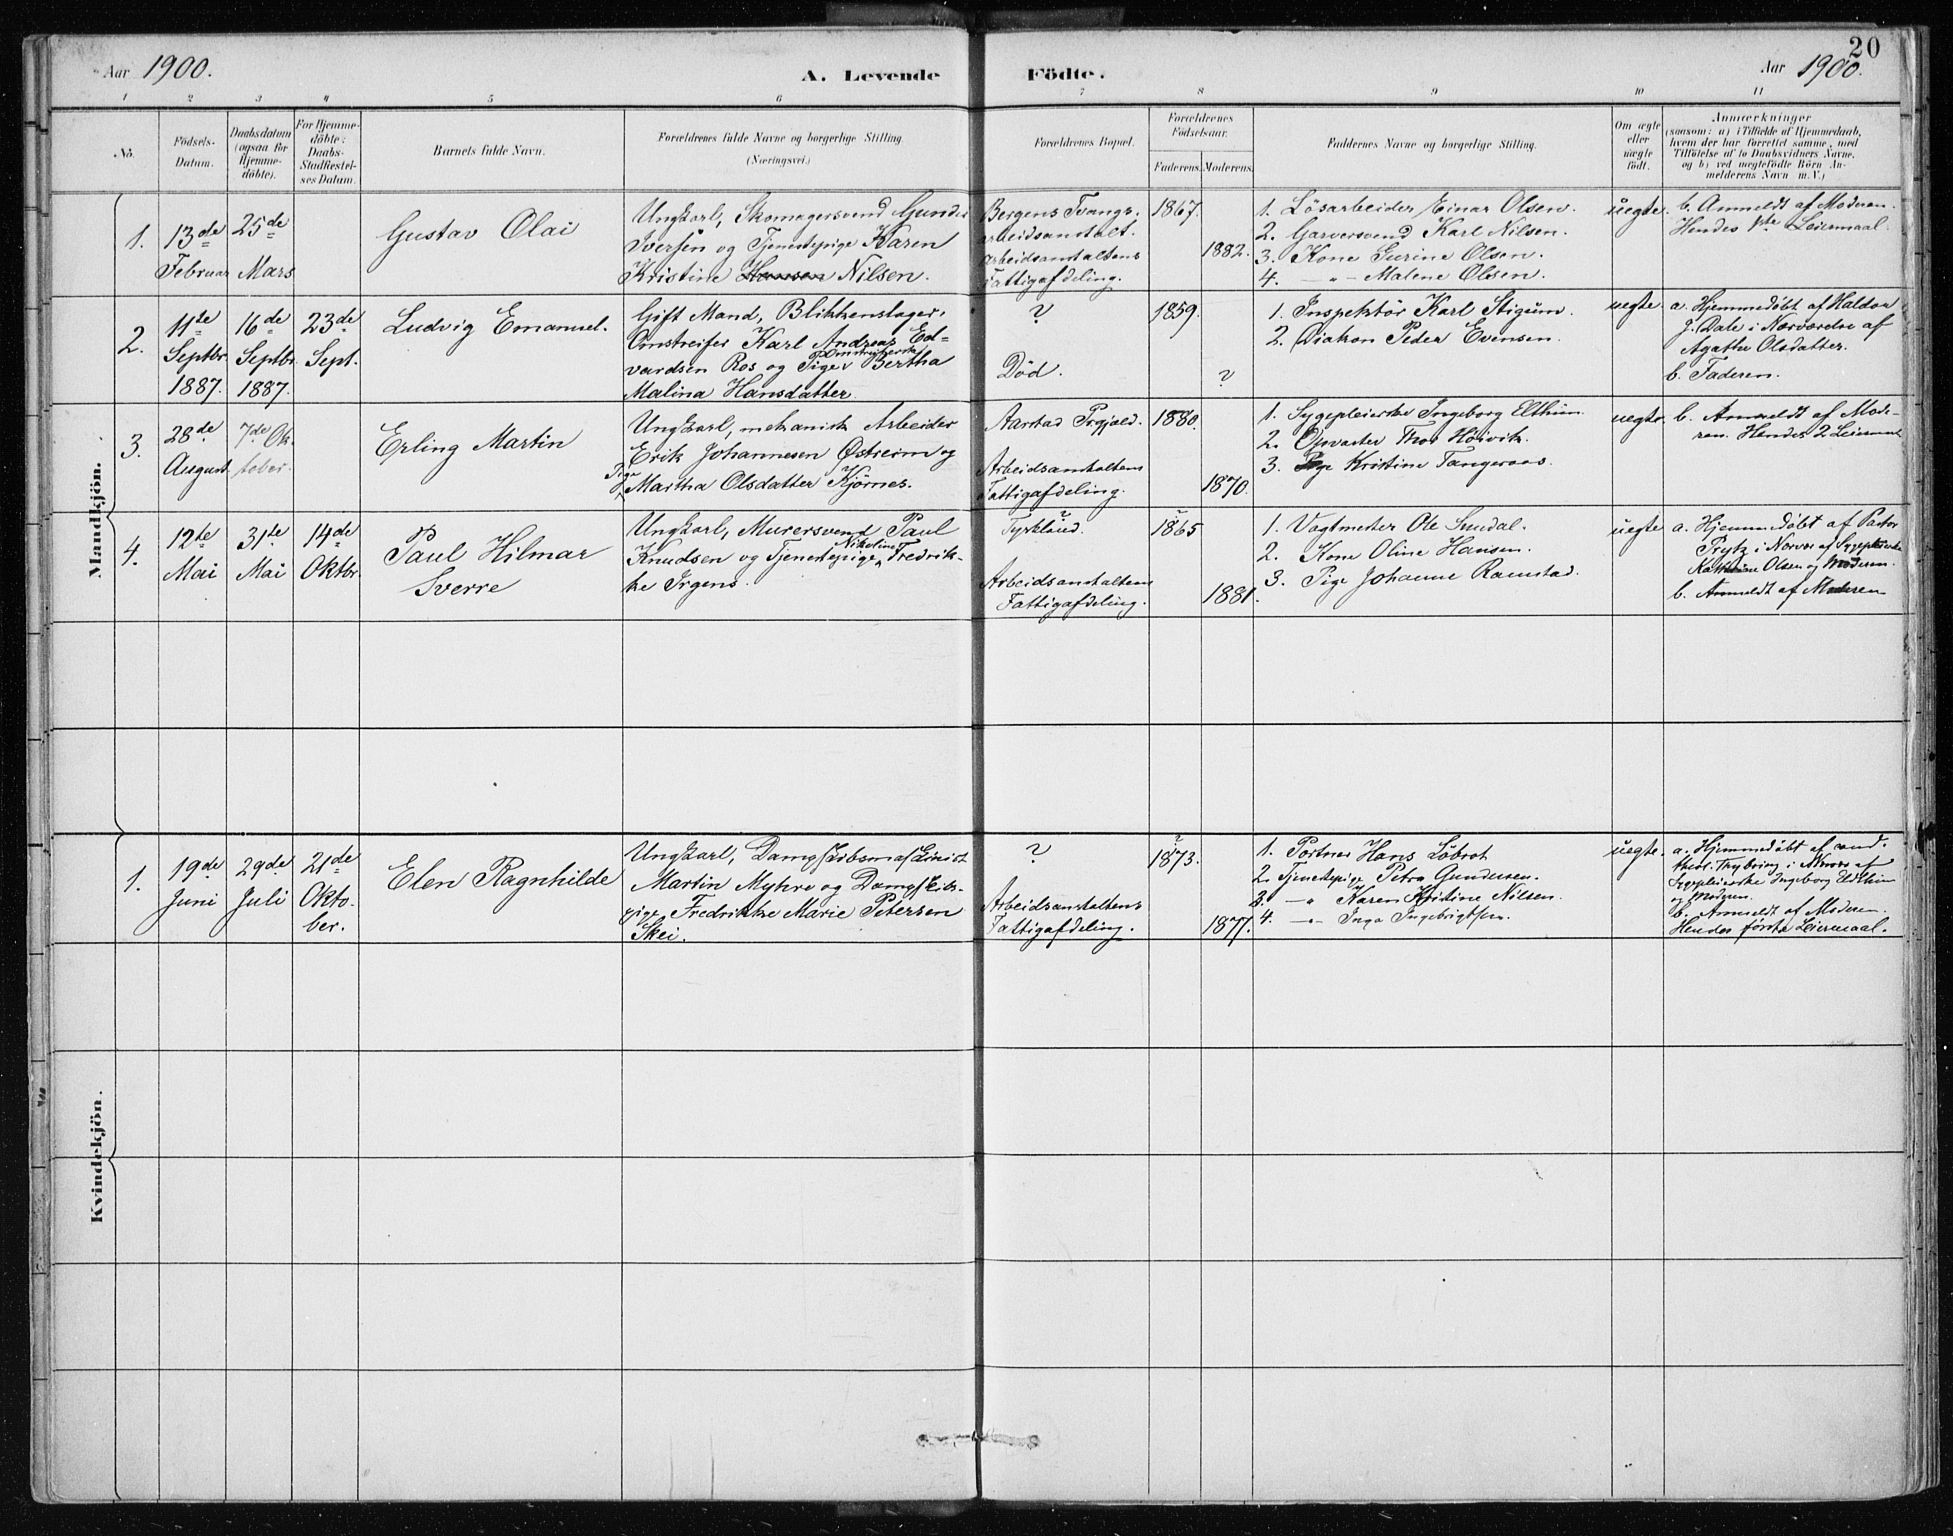 Aar 1900.
A. Levende Födte.
Aar 1900.
20
1 2 3 4 5 6 7 8 9 10 11
No.
Födsels-
Datum.
Daabsdatum
(ogsaa for
Hjemme-
döbte).
For Hjemme-
döbte:
Daabs-
Stadfæstel-
ses Datum.
Barnets fulde Navn.
Forældrenes fulde Navne og borgerlige Stilling
(Næringsvei.)
Forældrenes Bopæl.
Forældrenes
Födselsaar.
Faderens. Moderens.
Faddernes Navne og borgerlige Stilling.
Om ægte
eller
uægte
födt.
Anmærkninger
(saasom: a) i Tilfælde af Hjemmedaab,
hvem der har forrettet samme, med
Tilföielse af to Daabsvidners Navne,
og b) ved uægtefödte Börn An-
melderens Navn m. V.)
Mandkjön.
1.
13de
Februar
25de
Mars
Gustav Olai
Ungkarl, Skomagersvend Gunder
Iversen og Tjenestepige Karen
Kristine Hansen Nilsen.
Bergens Tvangs-
arbeidsanstalt.
Arbeidsanstaltens
Fattigafdeling.
1867.
1882.
1. Lösarbeider Einar Olsen.
2. Garversvend Karl Nilsen.
3. Kone Surine Olsen.
4. -"- Malene Olsen.
uegte.
b. Anmeldt af Moderen.
Hendes 1ste Leiermaal.
2.
11te
Septbr.
1887.
16de
Septbr.
1887.
23de
Sept.
Ludvig Emanuel.
Gift Mand, Blikkenslager,
Omstreifer Karl Andreas Ed-
vardsen Ros og Pige Omstreiferske Bertha
Malina Hansdatter
?
Död.
1859.
?
1. Inspektör Karl Stigum.
2. Diakon Peder Evensen.
uegte.
a. Hjemmedöbt af Haldor
J. Dale i Nærværelse af
Agathe Olsdatter.
b. Faderen.
3.
28de
August
7de Ok-
tober.
Erling Martin
Ungkarl, mekanisk Arbeider
Erik Johannesen Østreim og
Pige Martha Olsdatter Kjörnes.
Aarstad Prgjæld.
Arbeidsanstaltens
Fattigafdeling.
1880.
1870.
1. Sygepleierske Ingeborg Elthun
2. Opvarter Thor Höivik.
3. Pige Kristine Tangeraas.
uegte.
b. Anmeldt af Mode-
ren. Hendes 2 Leierm.
4.
12te
Mai
31te
Mai
14de
Oktbr.
Paul Hilmar
Sverre
Ungkarl, Murersvend Paul
Knudsen og Tjenestepige Nikoline Fredrik-
ke Irgens.
?
Tyskland.
Arbeidsanstaltens
Fattigafdeling.
?
1865
1881.
1. Vagtmester Ole Sundal.
2. Kone Oline Hansen.
3. Pige Johanne Ramstad.
uegte
a. Hjemmedöbt af Pastor
Prytz i Nærvær af Sygepleierske
Kathrine Olsen og Moderen.
b. Anmeldt af Moderen
Kvindekjön.
1.
19de
Juni
29de
Juli
21de
Okto-
ber.
Elen Ragnhilde
Ungkarl, Dampskibsmaskinist
Martin Myhre og Dampskibs-
pige Fredrikke Marie Petersen
Skei.
?
Arbeidsanstaltens
Fattigafdeling.
?
1873.
1877.
1. Portner Hans Löbrot
2. Tjenestepige Petra Gundersen.
3. -"- Karen Kristine Nilsen.
4. -"- Inga Ingebrigtsen.
uegte.
a. Hjemmedöbt af cand.
theol. Thybring i Nærvær af
Sygepleierske Ingeborg Elthun
og Moderen.
b. Anmeldt af Moderen.
Hendes förste Leiermaal.